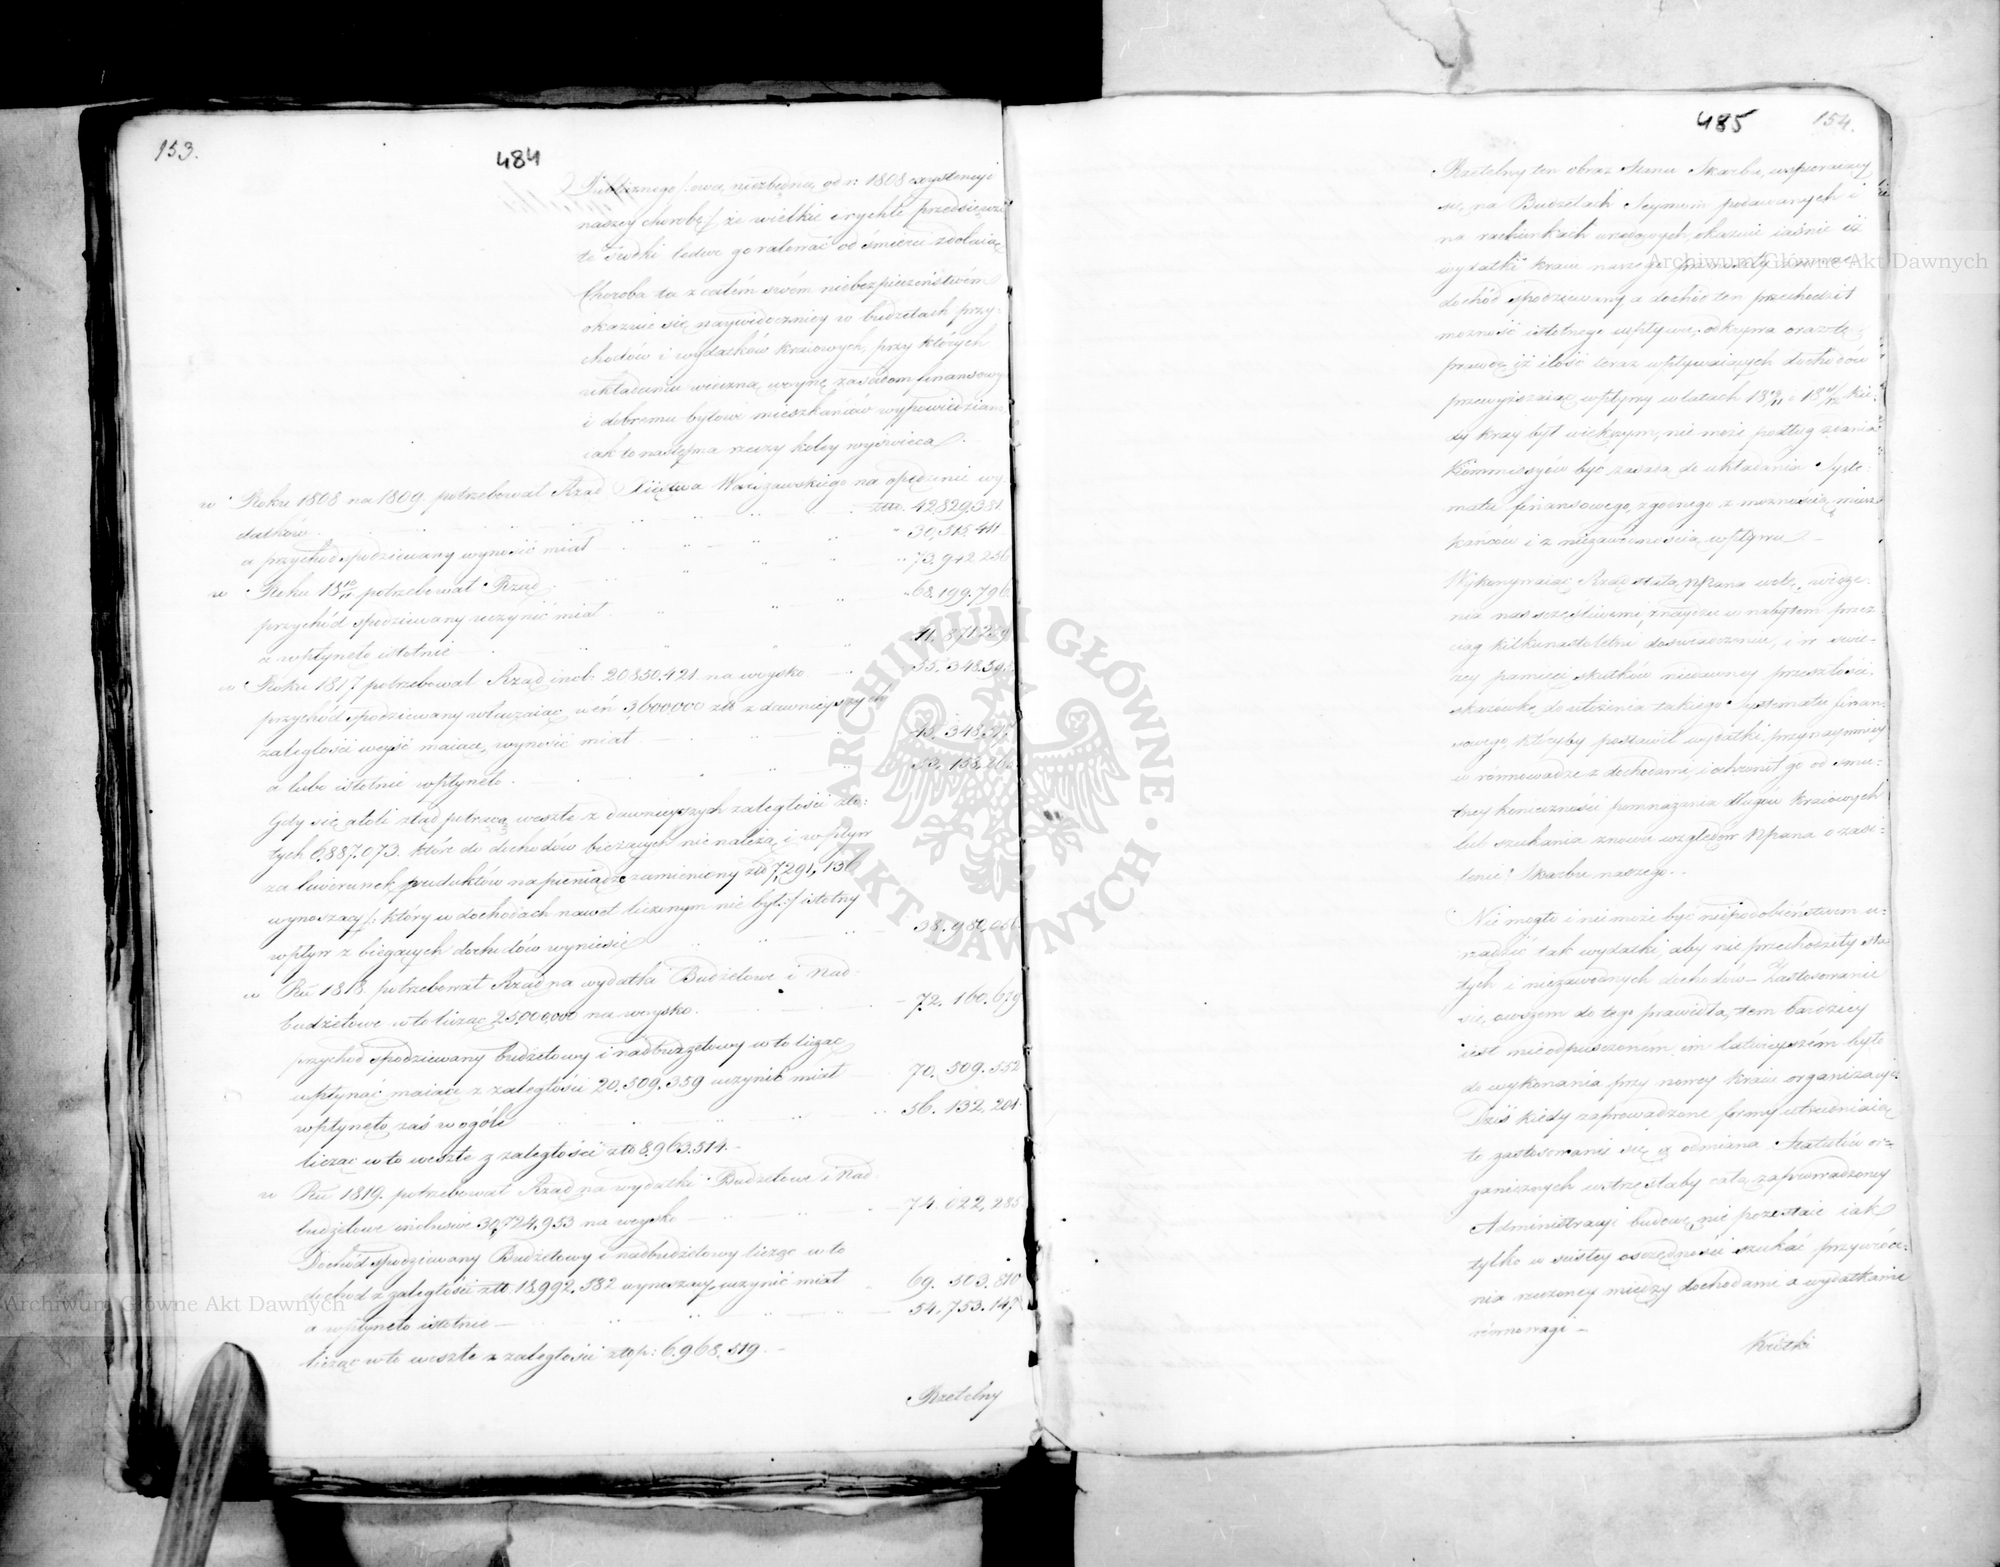 153.
484
Publicznego /: owa, niezbędna, od r: 1808 exystencyi
naszey chorobę :/ że wielkie i rychłe przedsięwzię
te środki ledwo go ratować od śmierci zdołaią
Choroba ta z całem swém niebezpieczeństwem
okazuie się naywidoczniey w budżetach przy-
chodów i wydatków kraiowych, przy których
układaniu wieczną woynę zasadom finansowym
i dobremu bytowi mieszkańców wypowiedziano,
iak to następna rzeczy koley wyświeca.
w Roku 1808 na 1809. potrzebował Rząd Xięstwa Warszawskiego na opędzenie wy-
datków złto. 42829.381.
a przychód spodziewany wynosić miał " 30,515,411
w Roku 18 10/11 potrzebował Rząd " 73,942.256
przychód spodziewany uczynić miał " 68.199.796
a wpłynęło istotnie 41.871.229
w Roku 1817 potrzebował Rząd incl: 20850.421 na woysko 55.348.598
przychód spodziewany wliczaiąc weń 3,600,000 złt z dawnieyszych
zaległości weyść maiące, wynosić miał 48.348.577
a lubo istotnie wpłynęło 53.158.264
Gdy się atoli ztąd potrącą weszłe z dawnieyszych zaległości zło-
tych 6,887.073. które do dochodów bieżących nie należą i wpływ
za liwerunek produktów na pieniądze zamieniony złt 7,291,136
wynoszący /: który w dochodach nawet liczonym nie był :/ istotny
wpływ z bieżących dochodów wyniesie 38.980,056
w Rū 1818. potrzebował Rząd na wydatki Budżetowe i Nad-
budżetowe w to licząc 25,000,000 na woysko. 72.160.679
przychód spodziewany budżetowy i nadbudżetowy w to licząc
wpłynąć maiące z zaległości 20.509.359 uczynić miał 70.509.552
wpłynęło zaś w ogóle 56.132.204
licząc w to weszłe z zaległości złto 8.963.514.
w Rū 1819. potrzebował Rząd na wydatki Budżetowe i Nad
budżetowe inclusive 30,724,953 na woysko 74.022,285
Dochód spodziewany Budżetowy i nadbudżetowy licząc w to
dochód z zaległości złto 18,992,582 wynoszący, uczynić miał 69.503.810
a wpłynęło istotnie 54.753.147
licząc w to weszłe z zaległości złtp: 6.968.519.
Rzetelny
485
154.
Rzetelny ten obraz Stanu Skarbu, wspieraiący
się na Budżetach Seymom podawanych i
na rachunkach urzędowych, okazuie iaśnie iż
wydatki kraiu naszego przenosiły zawsze
dochód spodziewany a dochód ten przechodził
możność istotnego wpływu; odkrywa oraz tę
prawdę iż ilość teraz wpływaiących dochodów
przewyższaiąc wpływy w latach 18 10/11 i 18 11/12 kie-
dy kray był większym, nie może podług zdania
Kommissyów być zasadą do układania Syste-
matu finansowego, zgodnego z możnością miesz-
kańców i z niezawodnością wpływu.
Wykonywaiąc Rząd stałą NPana wolę, widze-
nia nas szczęśliwemi, znayduie w nabytem przez
ciąg kilkunastoletni doświadczeniu, i w świe-
żey pamięci skutków niedawney przeszłości,
skazówkę do ułożenia takiego Systematu finan-
sowego, któryby postawił wydatki przynaymniey
w równowadze z dochodami, i ochronił go od smu-
tney konieczności pomnażania długów kraiowych
lub szukania znowu względów NPana o zasi-
lenie Skarbu naszego.
Nie mogło i nie może być niepodobieństwem u-
rządzić tak wydatki, aby nie przechodziły sta-
łych i niezawodnych dochodów. Zastosowanie
się, owszem do tego prawidła, tem bardziey
iest nieodpuszczonem im łatwieyszém było
do wykonania przy nowey kraiu organizacyi.
Dziś kiedy zaprowadzone formy utrudniaią
to zastosowanie się a odmiana Statutów or-
ganicznych wstrzęsłaby całą zaprowadzoney
Administracyi budowę, nie pozostaie iak
tylko w ścisłey oszczędności szukać przywróce-
nia rzeczoney między dochodami a wydatkami
równowagi -
Krótki
Archiwum Główne Akt Dawnych
Archiwum Główne Akt Dawnych
ARCHIWUM GŁÓWNE
AKT DAWNYCH